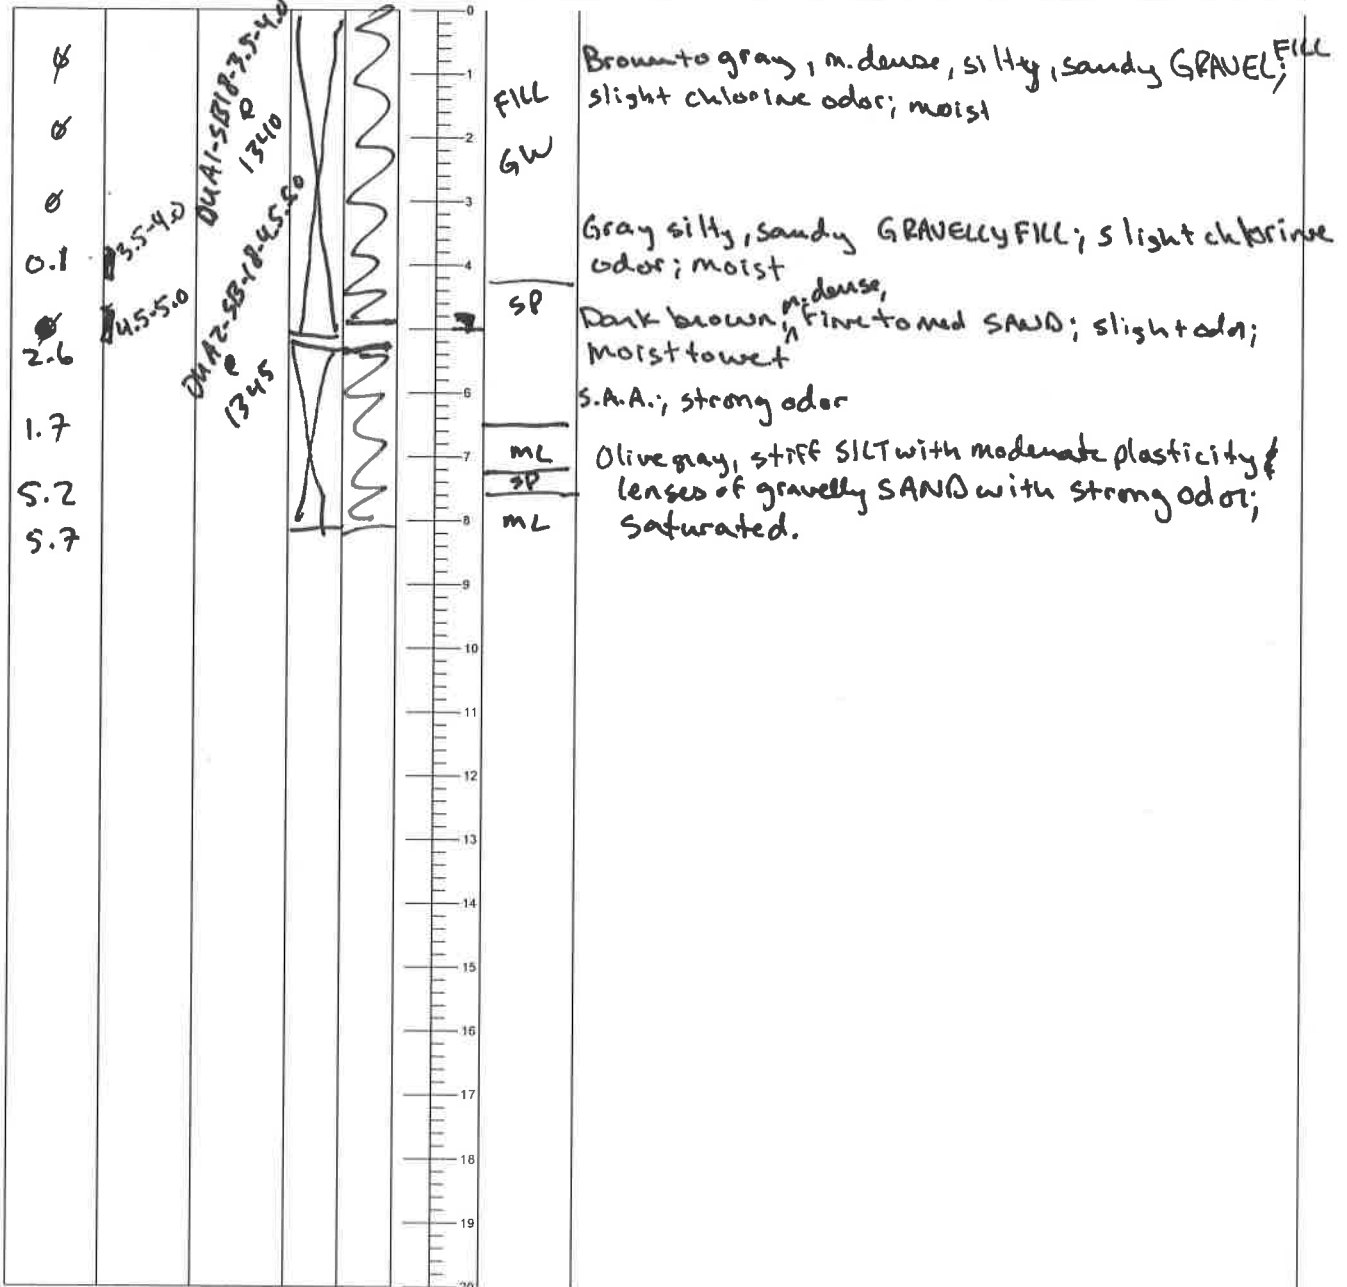 ø
ø
ø
0.1
2.6
1.7
5.2
5.7
3.5-4.0
4.5-5.0
DUA1-SB18-3.5-4.0
@
1340
DUA2-SB-18-4.5-5.0
@
1345
0
1
2
3
4
6
7
8
9
10
11
12
13
14
15
16
17
18
19
20
FILL
GW
SP
ML
SP
ML
Brown to gray, m. dense, silty, sandy GRAVEL FILL;
slight chlorine odor; moist
Gray silty, sandy GRAVELLY FILL; slight chlorine
odor; moist
Dark brown, m. dense, fine to med SAND; slight odor;
moist to wet
S.A.A.; strong odor
Olive gray, stiff SILT with moderate plasticity &
lenses of gravelly SAND with strong odor;
saturated.